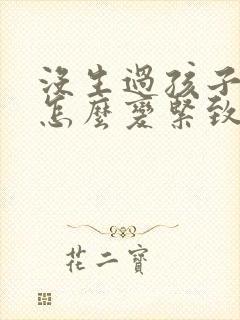 沒生過孩子
怎麼變緊致
花二寶